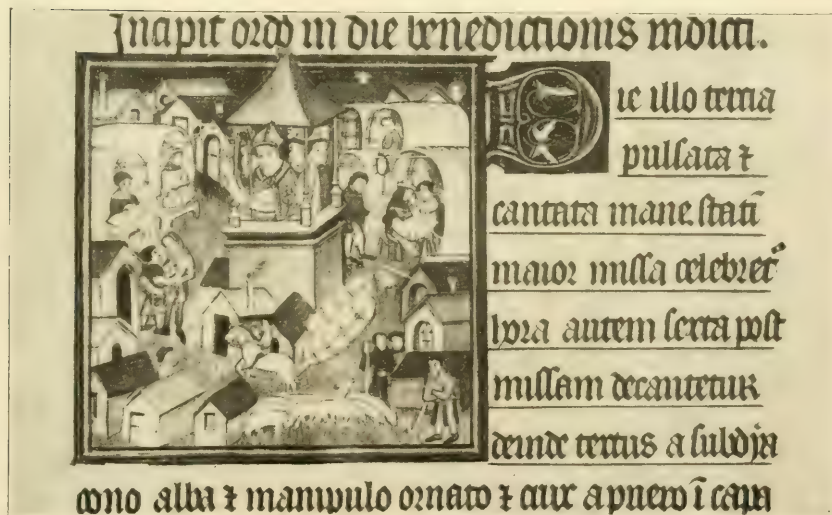 Incipit ordo in die benedictionis indicti.
Die illo tercia
pulsata ⁊
cantata mane statĩ
maior missa celebret᷑
hora autem sexta post
missam decantetur
deinde textus a subdya
cono alba ⁊ manipulo ornato ⁊ crux a puero ĩ capa